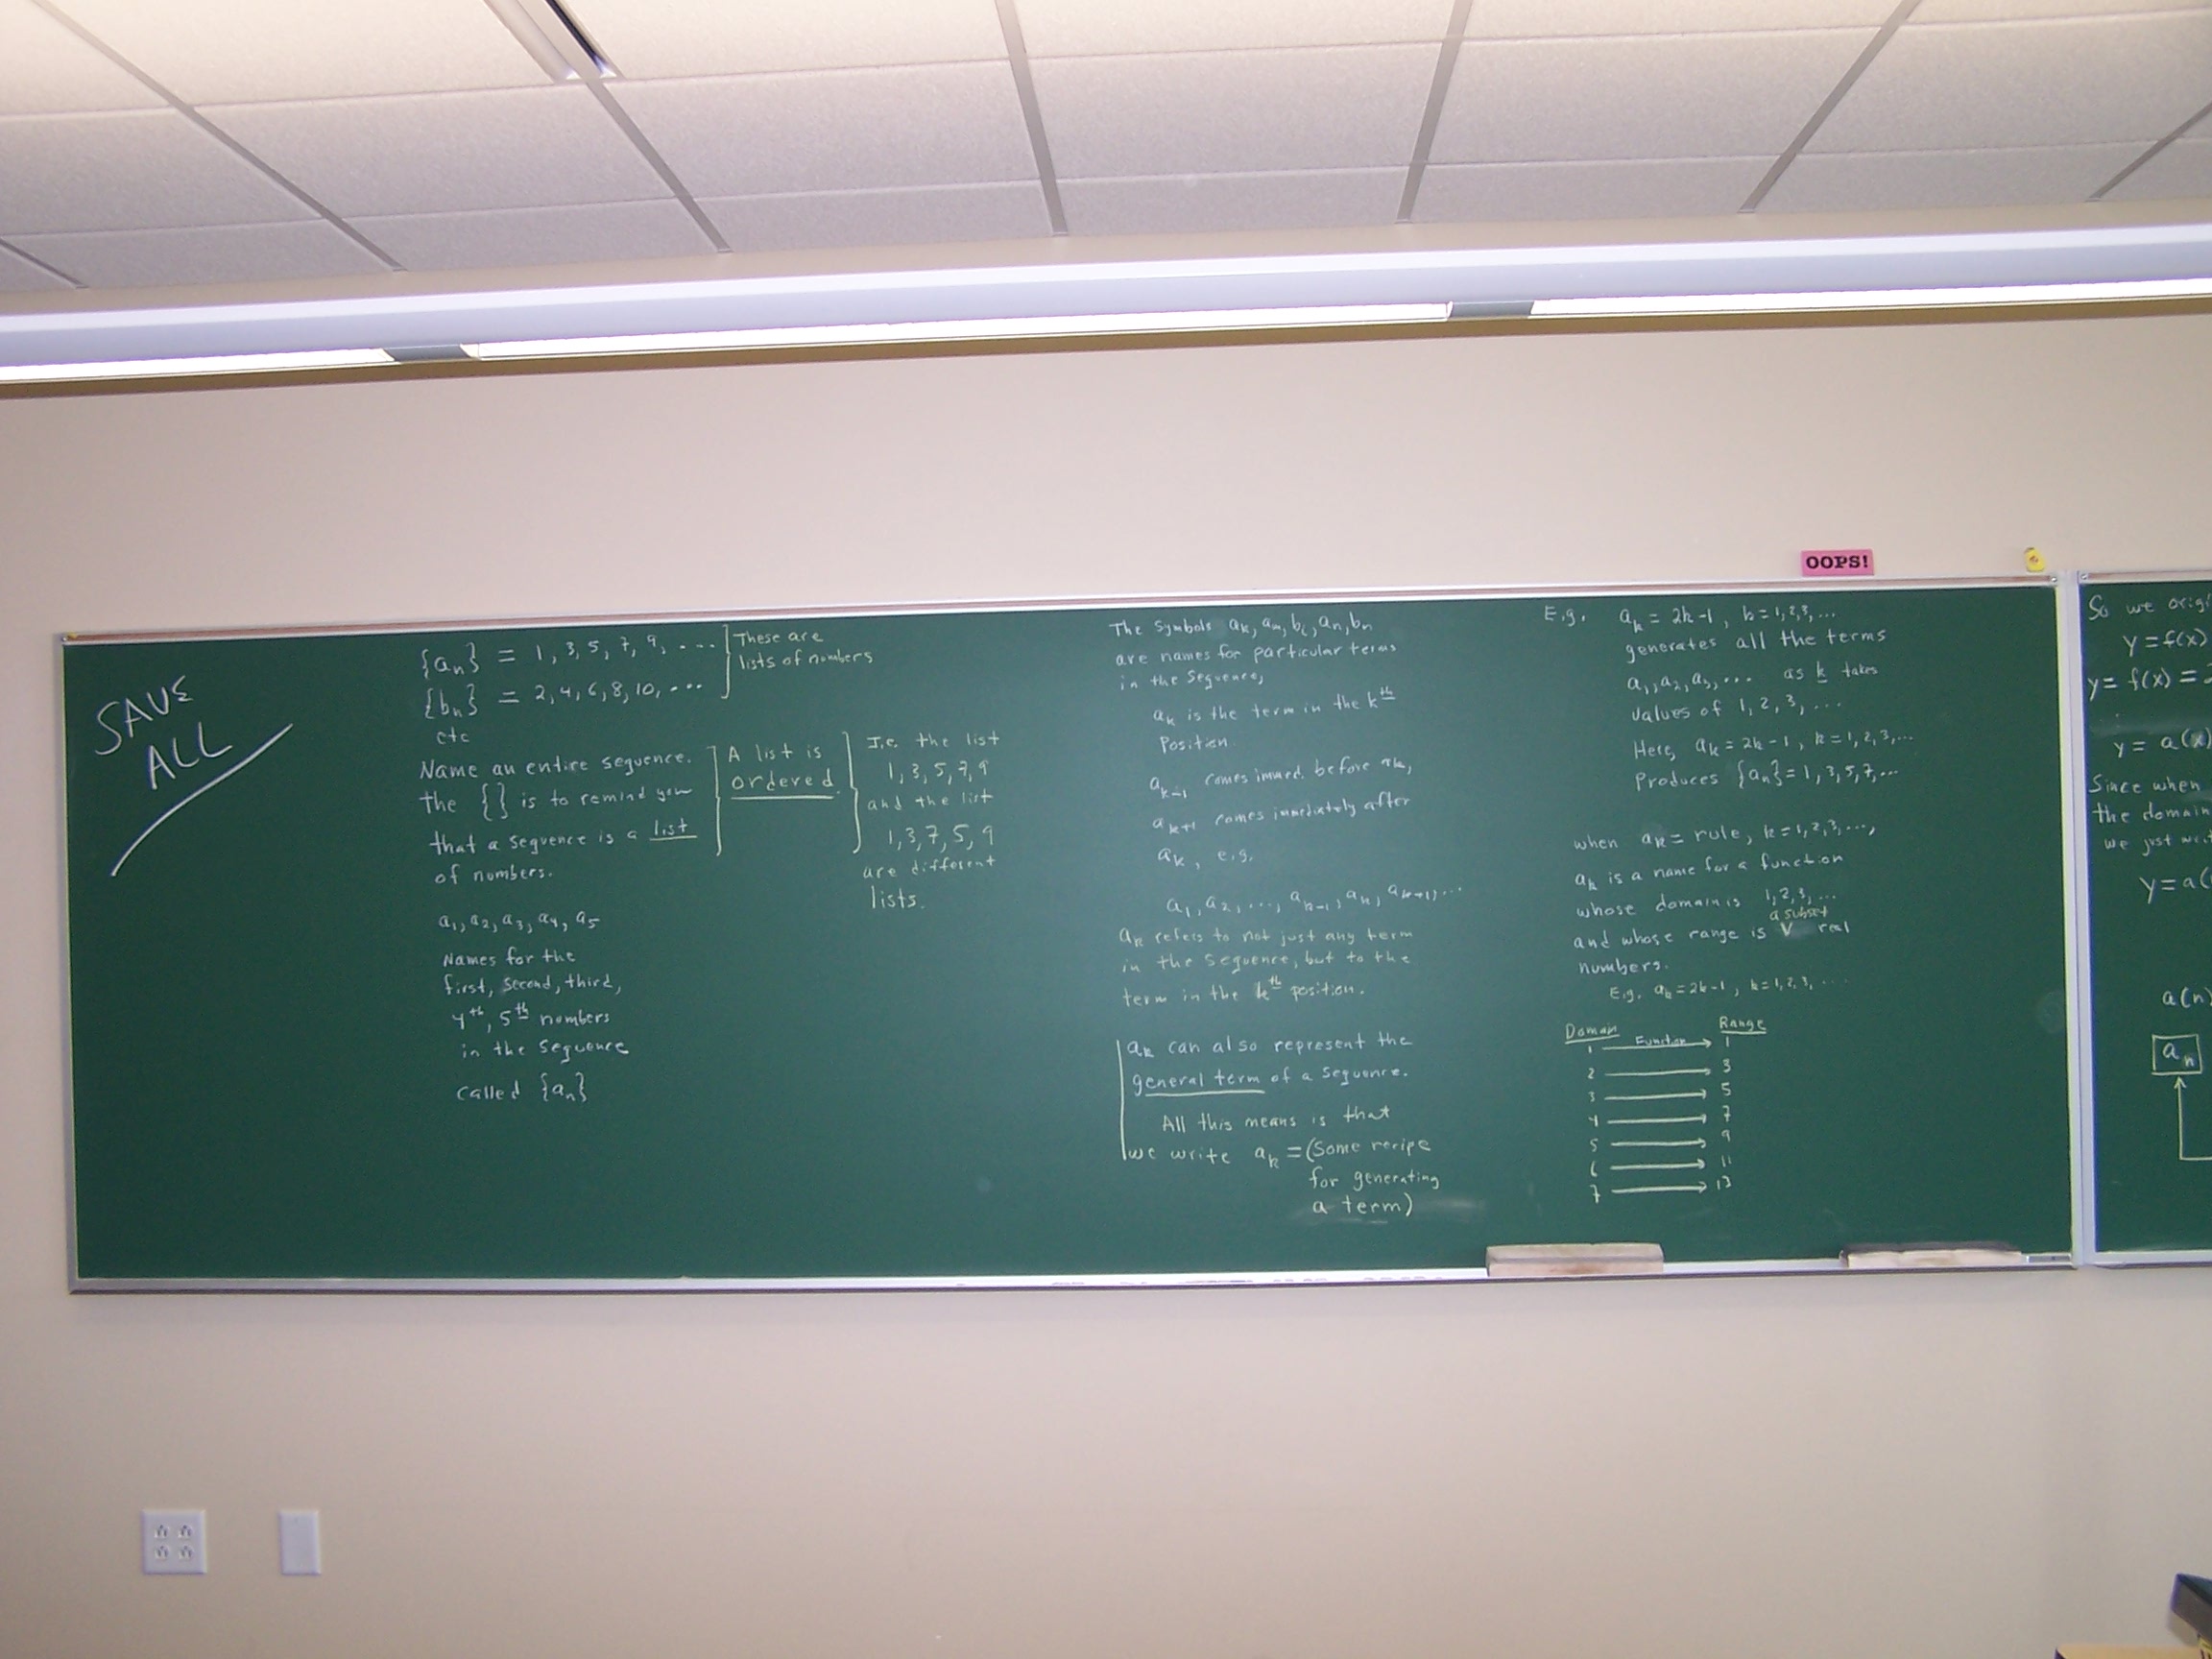 SAVE
ALL
{aₙ} = 1, 3, 5, 7, 9, ....
{bₙ} = 2, 4, 6, 8, 10, ...
etc
These are
lists of numbers
Name an entire sequence.
the { } is to remind you
that a sequence is a list
of numbers.
A list is
ordered.
I.e. the list
1, 3, 5, 7, 9
and the list
1, 3, 7, 5, 9
are different
lists.
a₁, a₂, a₃, a₄, a₅
Names for the
first, second, third,
4th, 5th numbers
in the sequence
called {aₙ}
The symbols aₖ, aₘ, bᵢ, aₙ, bₙ
are names for particular terms
in the sequence,
aₖ is the term in the kth
position.
aₖ₋₁ comes immed. before aₖ,
aₖ₊₁ comes immediately after
aₖ, e.g.
a₁, a₂, ..., aₖ₋₁, aₖ, aₖ₊₁, ...
aₖ refers to not just any term
in the sequence, but to the
term in the kth position.
aₖ can also represent the
general term of a sequence.
All this means is that
we write aₖ = (some recipe
for generating
a term)
OOPS!
E.g. aₖ = 2k-1, k = 1, 2, 3, ...
generates all the terms
a₁, a₂, a₃, ... as k takes
values of 1, 2, 3, ...
Here, aₖ = 2k-1, k = 1, 2, 3, ...
Produces {aₙ} = 1, 3, 5, 7, ...
when aₖ = rule, k = 1, 2, 3, ...,
aₖ is a name for a function
whose domain is 1, 2, 3, ...
a subset
and whose range is V real
numbers.
E.g. aₖ = 2k-1, k = 1, 2, 3, ....
Domain Function Range
1 → 1
2 → 3
3 → 5
4 → 7
5 → 9
6 → 11
7 → 13
So we
y = f(x)
y = f(x) =
y = a(x)
Since when
the domain
we just
y = a(
a(n)
aₙ